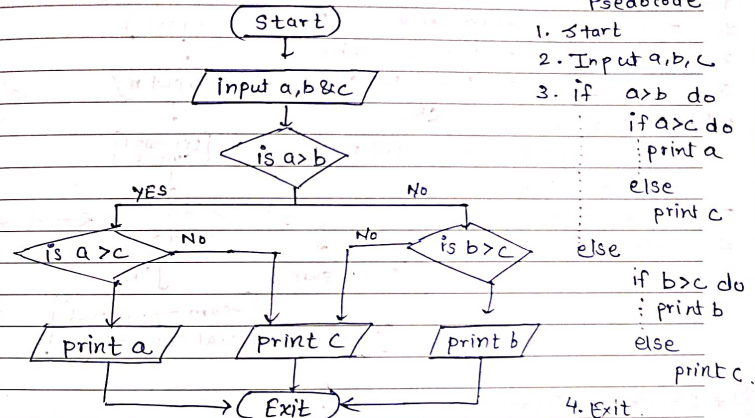 Start
input a, b & c
is a > b
YES
No
is a > c
No
No
is b > c
print a
print c
print b
Exit
Pseudocode
1. Start
2. Input a, b, c
3. if a>b do
if a>c do
print a
else
print c
else
if b>c do
print b
else
print c.
4. Exit